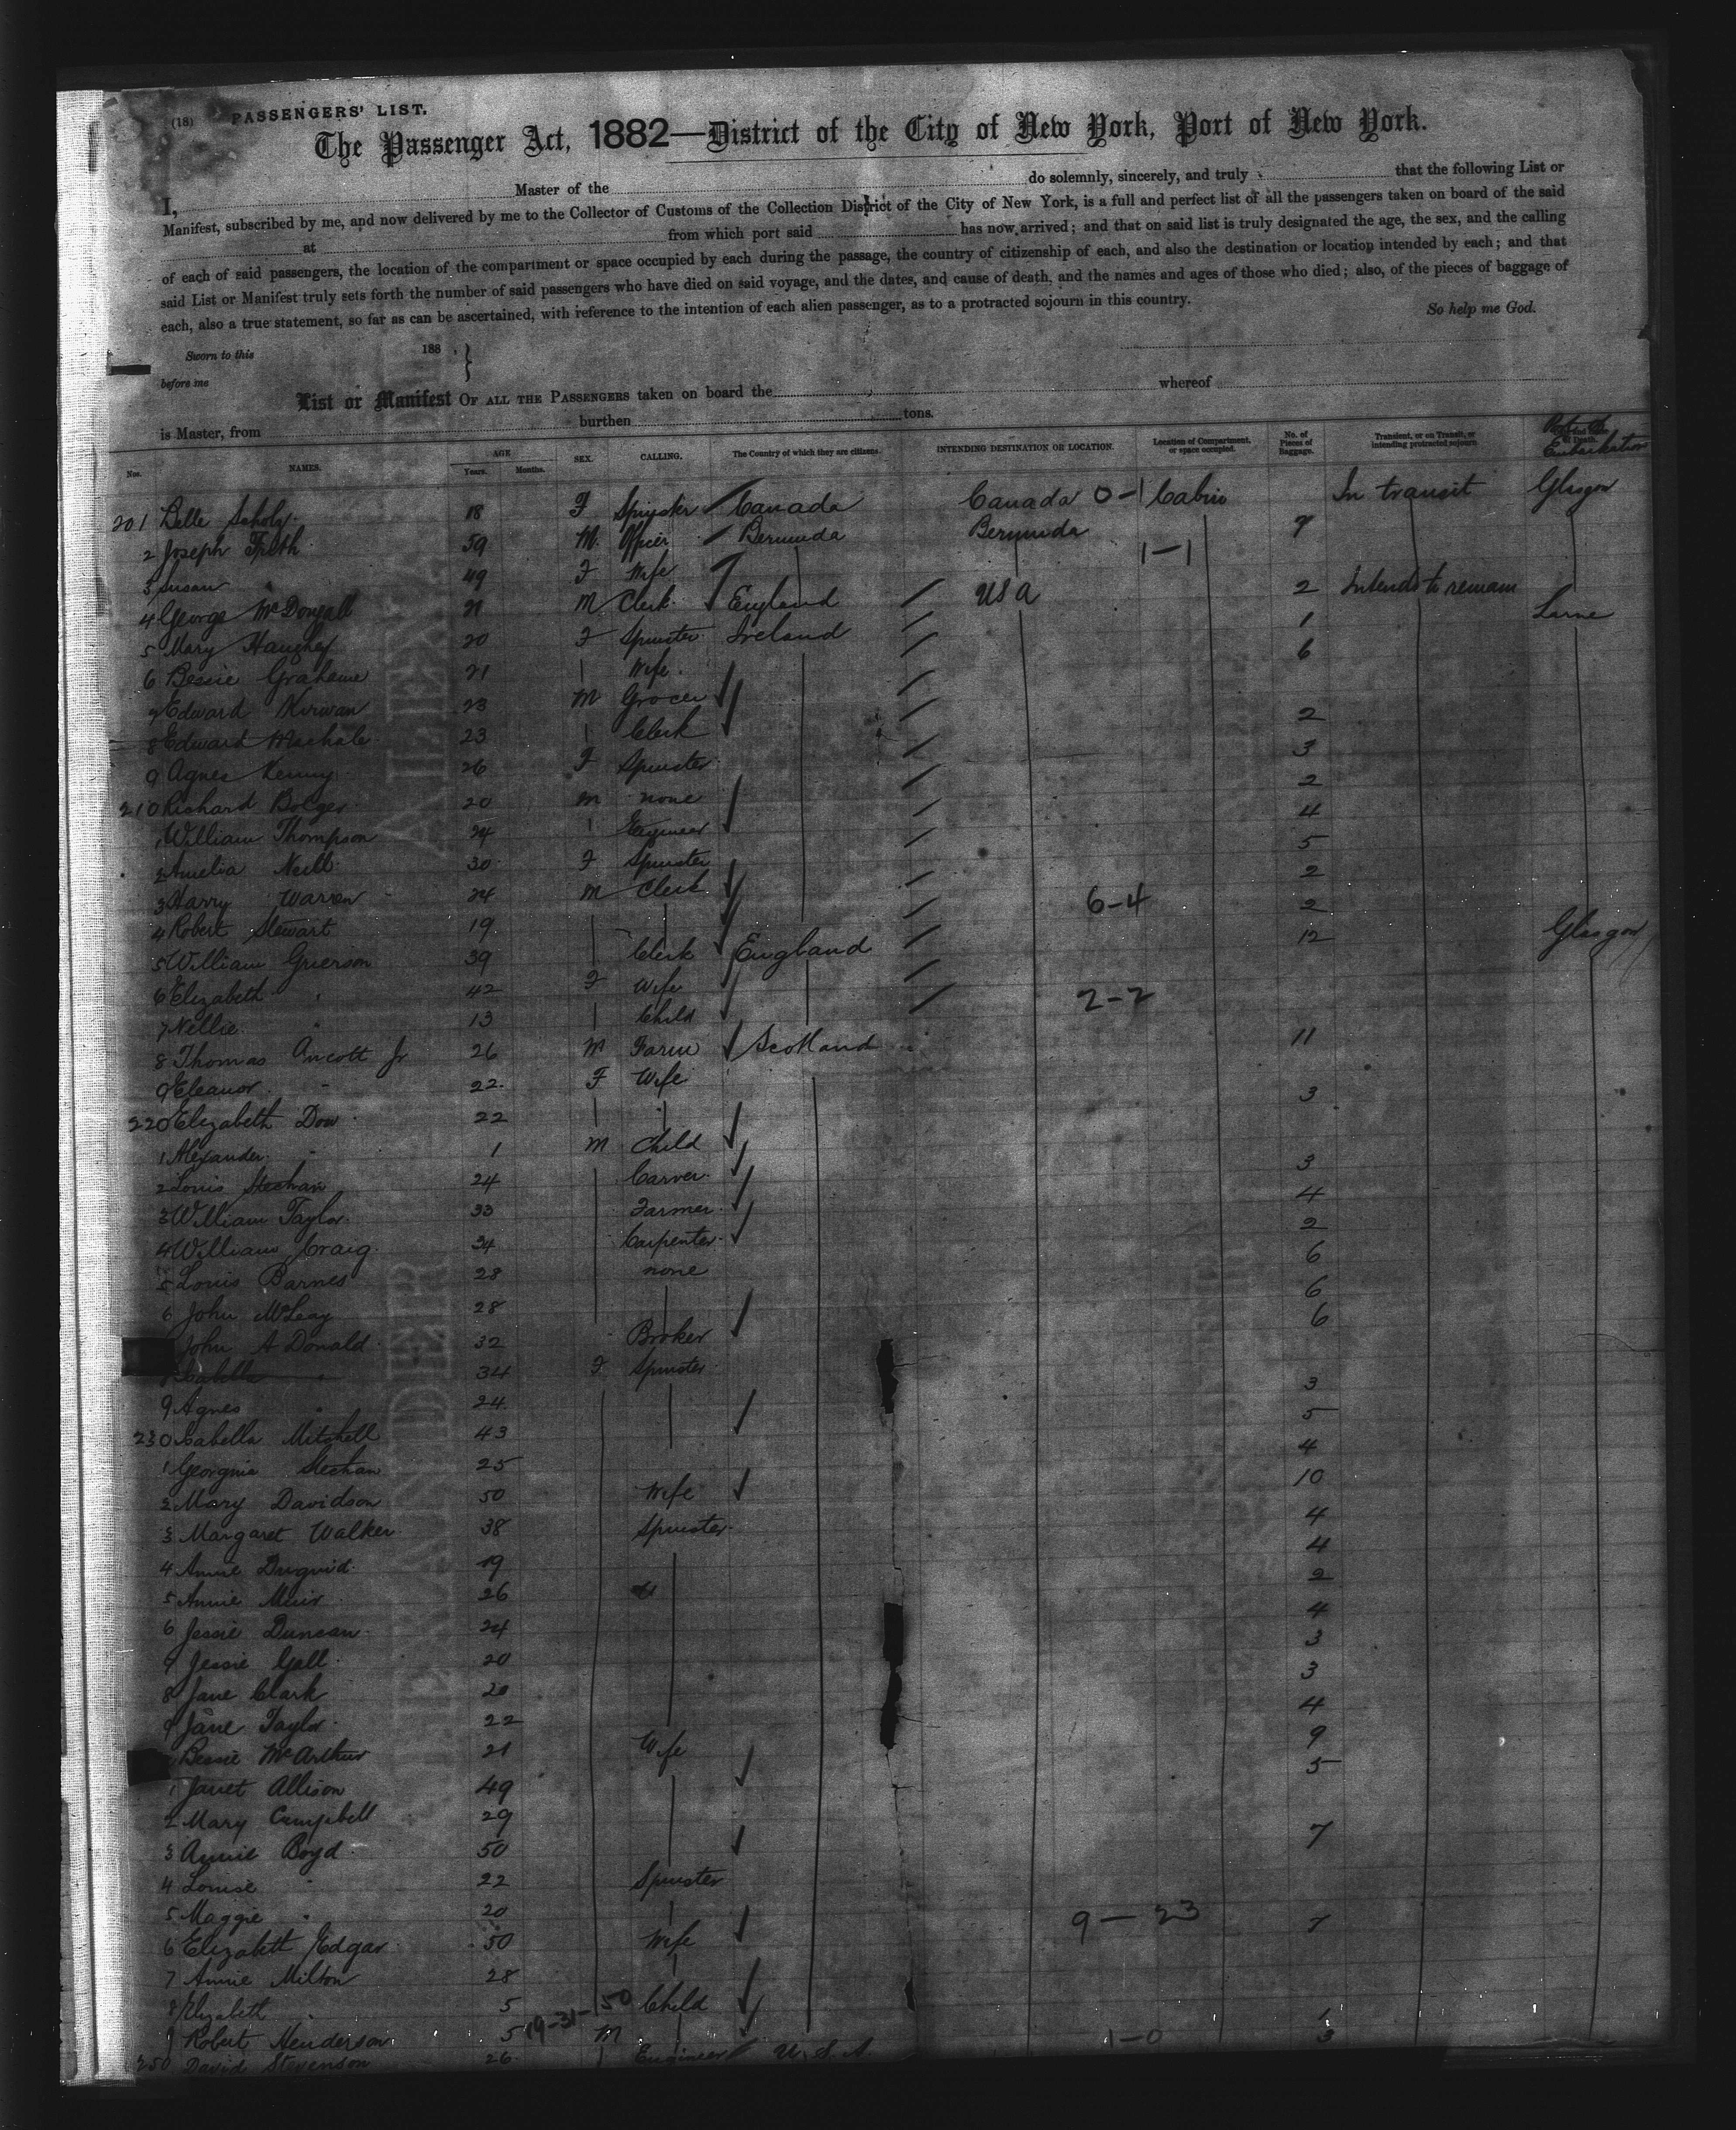 (18) PASSENGERS' LIST.
The Passenger Act, 1882—District of the City of New York, Port of New York.
I, Master of the do solemnly, sincerely, and truly that the following List or
Manifest, subscribed by me, and now delivered by me to the Collector of Customs of the Collection District of the City of New York, is a full and perfect list of all the passengers taken on board of the said
at from which port said has now arrived; and that on said list is truly designated the age, the sex, and the calling
of each of said passengers, the location of the compartment or space occupied by each during the passage, the country of citizenship of each, and also the destination or location intended by each; and that
said List or Manifest truly sets forth the number of said passengers who have died on said voyage, and the dates, and cause of death, and the names and ages of those who died; also, of the pieces of baggage of
each, also a true statement, so far as can be ascertained, with reference to the intention of each alien passenger, as to a protracted sojourn in this country. So help me God.
Sworn to this 188 .
before me
List or Manifest OF ALL THE PASSENGERS taken on board the whereof
is Master, from burthen tons.
Nos. NAMES. AGE Years. Months. SEX. CALLING. The Country of which they are citizens. INTENDING DESTINATION OR LOCATION. Location of Compartment, or space occupied. No. of Pieces of Baggage. Transient, or on Transit, or intending protracted sojourn Embarkation
201 Belle 18 F Spinster Canada Canada 0-1 Cabin In transit Glasgow
2 Joseph Frith 59 M. Officer Bermuda Bermuda 7
3 Susan " 49 F Wife 1-1
4 George McDougall 21 M Clerk England USA 2 Intends to remain
5 Mary Haughey 20 F Spinster Ireland 1 Larne
6 Bessie Grahame 21 Wife 6
7 Edward Kirwan 23 M Grocer
8 Edward Machale 23 Clerk 2
9 Agnes Kenny 26 F Spinster 3
210 Richard Bolger 20 M none 2
1 William Thompson 24 Engineer 4
2 Amelia Neill 30 F Spinster 5
3 Harry Warren 24 M Clerk 2
4 Robert Stewart 19 6-4 2
5 William Grierson 39 Clerk England 12 Glasgow
6 Elizabeth " 42 F Wife
7 Nellie " 13 Child 2-2
8 Thomas Jr 26 M Farm Scotland 11
9 Eleanor " 22 F Wife
220 Elizabeth Dow 22 3
1 Alexander " 1 M Child
2 Louis Stechan 24 Carver 3
3 William Taylor 33 Farmer 4
4 William Craig 34 Carpenter 2
5 Louis Barnes 28 none 6
6 John McLeay 28 6
John A Donald 32 Broker 6
8 Isabella " 34 F Spinster
9 Agnes " 24 3
230 Isabella Mitchell 43 5
1 Georgina Stechan 25 4
2 Mary Davidson 50 Wife 10
3 Margaret Walker 38 Spinster 4
4 Annie Duguid 19 4
5 Annie Muir 26 2
6 Jessie Duncan 24 4
7 Jessie Gall 20 3
8 Jane Clark 20 3
9 Jane Taylor 22 4
Bessie McArthur 21 Wife 9
1 Janet Allison 49 5
2 Mary Campbell 29
3 Annie Boyd 50 7
4 Louise " 22 Spinster
5 Maggie " 20
6 Elizabeth Edgar 50 Wife 9-23 7
7 Annie Milton 28
8 Elizabeth " 5 Child
9 Robert Henderson 5 19-31-50 M 1
250 David Stevenson 26 Engineer U.S.A 1-0 3